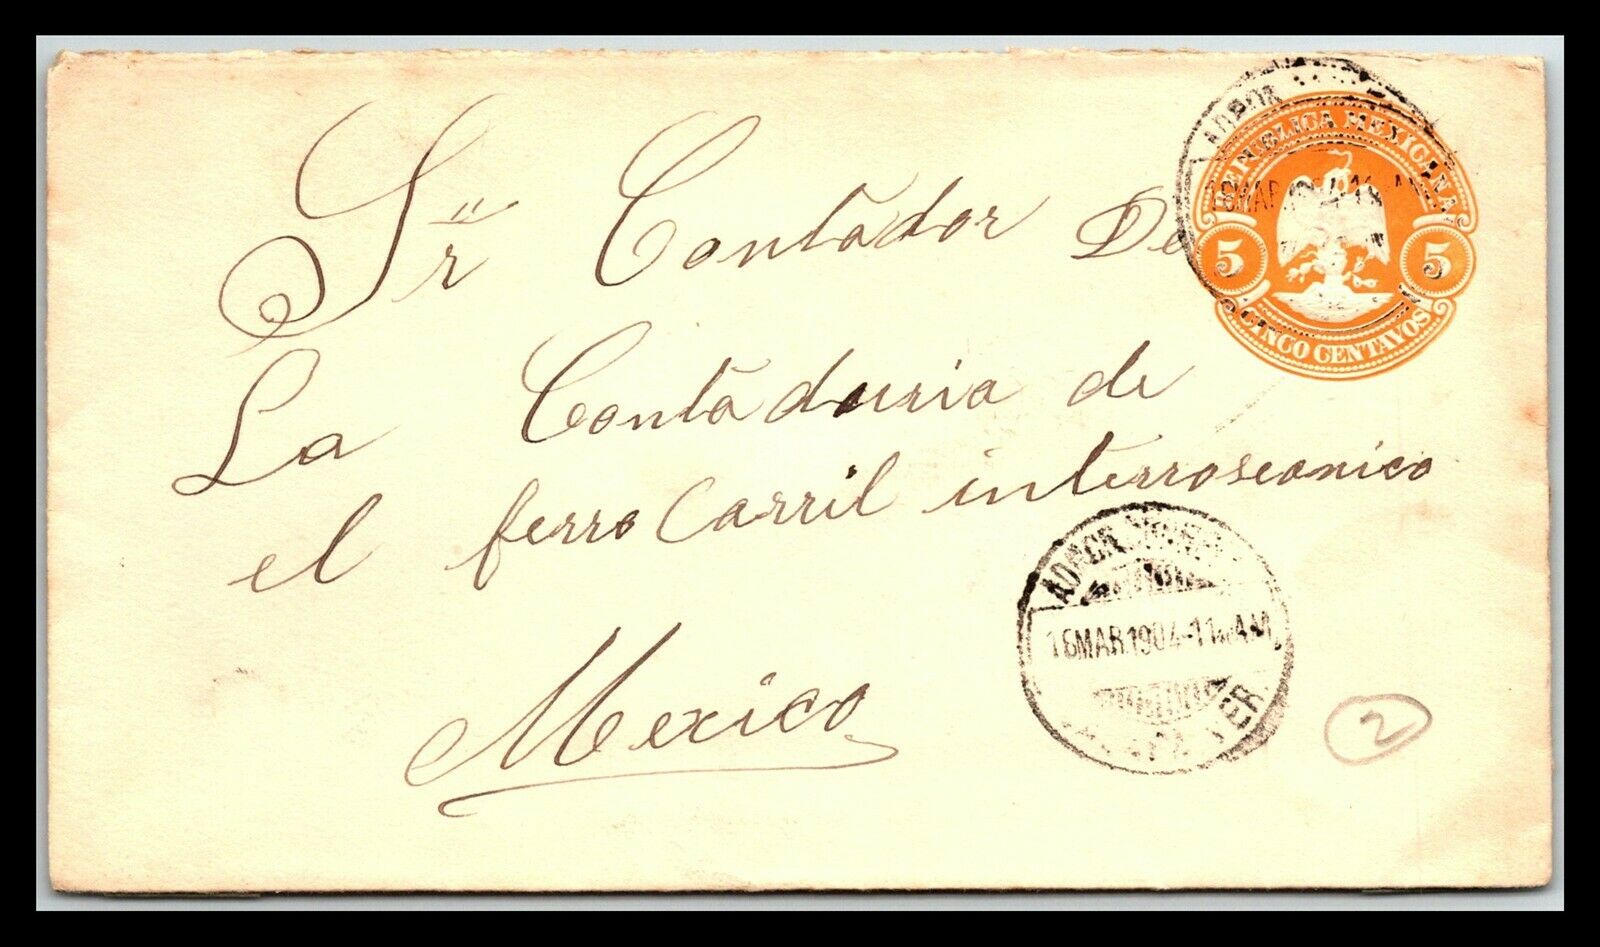 Sr Contador De
La Contaduria de
el ferro Carril interroseanico
Mexico
REPUBLICA MEXICANA
5 5
CINCO CENTAVOS
16MAR.1904-11 AM.
ADMOR
16MAR.1904-11 AM.
VER.
2